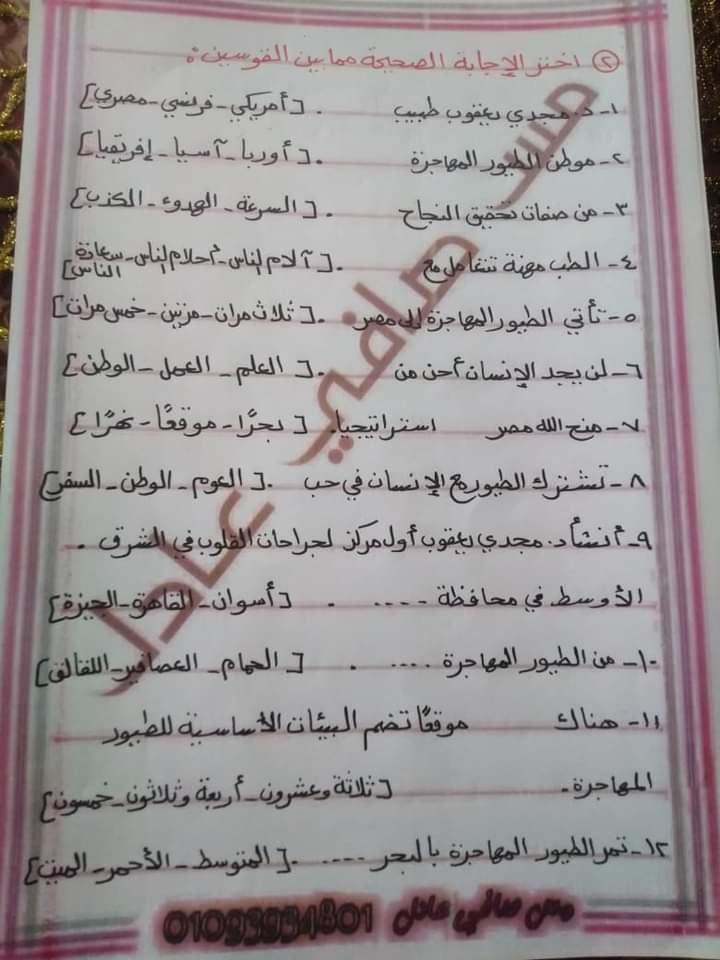 ٢ اختر الإجابة الصحيحة مما بين القوسين:
١- د. مجدي يعقوب طبيب . [أمريكي - فرنسي - مصري]
٢- موطن الطيور المهاجرة . [أوربا - آسيا - إفريقيا]
٣- من صفات تحقيق النجاح . [السرعة - الهدوء - الكذب]
٤- الطب مهنة تتعامل مع . [آلام الناس - أحلام الناس - سعادة الناس]
٥- تأتي الطيور المهاجرة إلى مصر . [ثلاث مرات - مرتين - خمس مرات]
٦- لن يجد الإنسان أحن من . [العلم - العمل - الوطن]
٧- منح الله مصر استراتيجيا. [بحرًا - موقعًا - نهرًا]
٨- تشترك الطيور مع الإنسان في حب . [العوم - الوطن - السفر]
٩- أنشأ د. مجدي يعقوب أول مركز لجراحات القلوب في الشرق .
الأوسط في محافظة .... . [أسوان - القاهرة - الجيزة]
١٠- من الطيور المهاجرة .... . [الحمام - العصافير - اللقالق]
١١- هناك موقعًا تضم البيئات الأساسية للطيور
المهاجرة. [ثلاثة وعشرون - أربعة وثلاثون - خمسون]
١٢- تمر الطيور المهاجرة بالبحر .... . [المتوسط - الأحمر - الميت]
مس صافي عادل
مس صافي عادل 01093934801